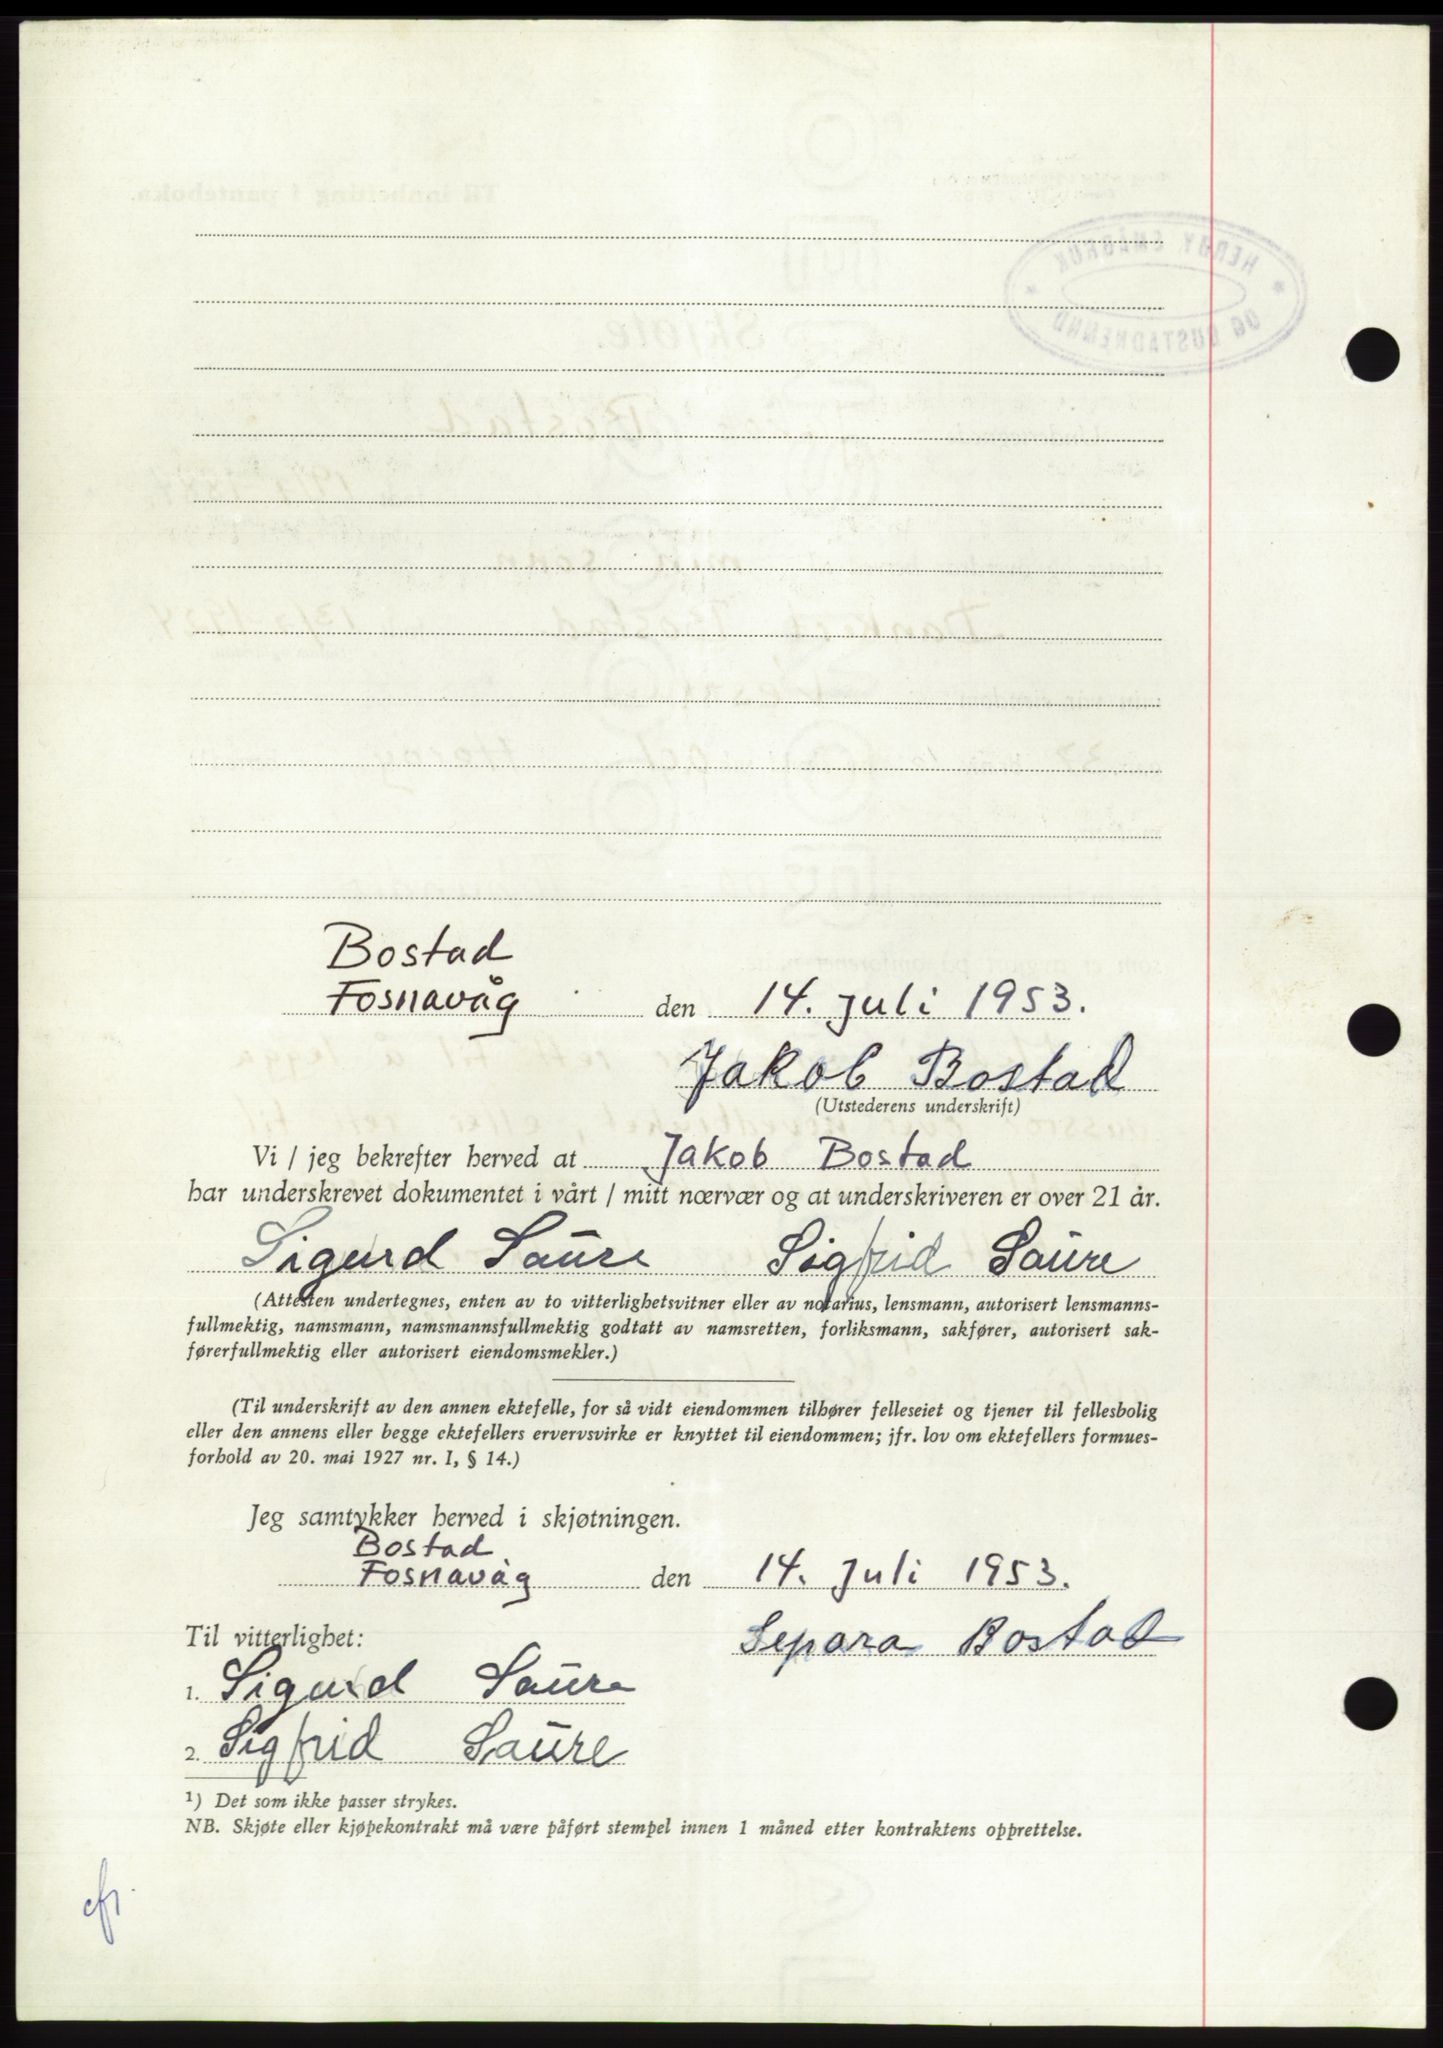 Bostad
Fosnavåg den 14. Juli 1953.
Jakob Bostad
(Utstederens underskrift)
Vi / jeg bekrefter herved at Jakob Bostad
har underskrevet dokumentet i vårt / mitt nærvær og at underskriveren er over 21 år.
Sigurd Saure Sigfrid Saure
(Attesten undertegnes, enten av to vitterlighetsvitner eller av notarius, lensmann, autorisert lensmanns-
fullmektig, namsmann, namsmannsfullmektig godtatt av namsretten, forliksmann, sakfører, autorisert sak-
førerfullmektig eller autorisert eiendomsmekler.)
(Til underskrift av den annen ektefelle, for så vidt eiendommen tilhører felleseiet og tjener til fellesbolig
eller den annens eller begge ektefellers ervervsvirke er knyttet til eiendommen; jfr. lov om ektefellers formues-
forhold av 20. mai 1927 nr. 1, § 14.)
Jeg samtykker herved i skjøtningen.
Bostad
Fosnavåg den 14. Juli 1953.
Til vitterlighet: Separa Bostad
1. Sigurd Saure
2. Sigfrid Saure
¹) Det som ikke passer strykes.
NB. Skjøte eller kjøpekontrakt må være påført stempel innen 1 måned etter kontraktens opprettelse.